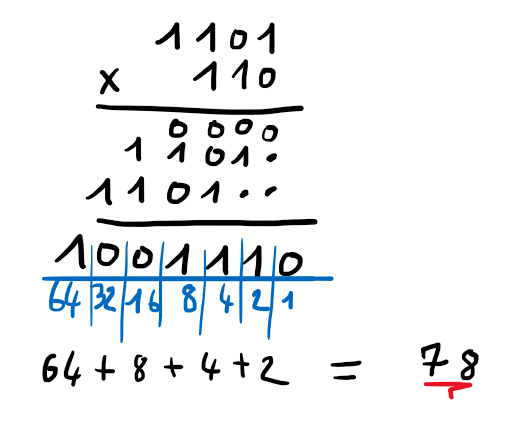 1101
x 110
0000
1101.
1101..
1001110
64 32 16 8 4 2 1
64 + 8 + 4 + 2 = 78